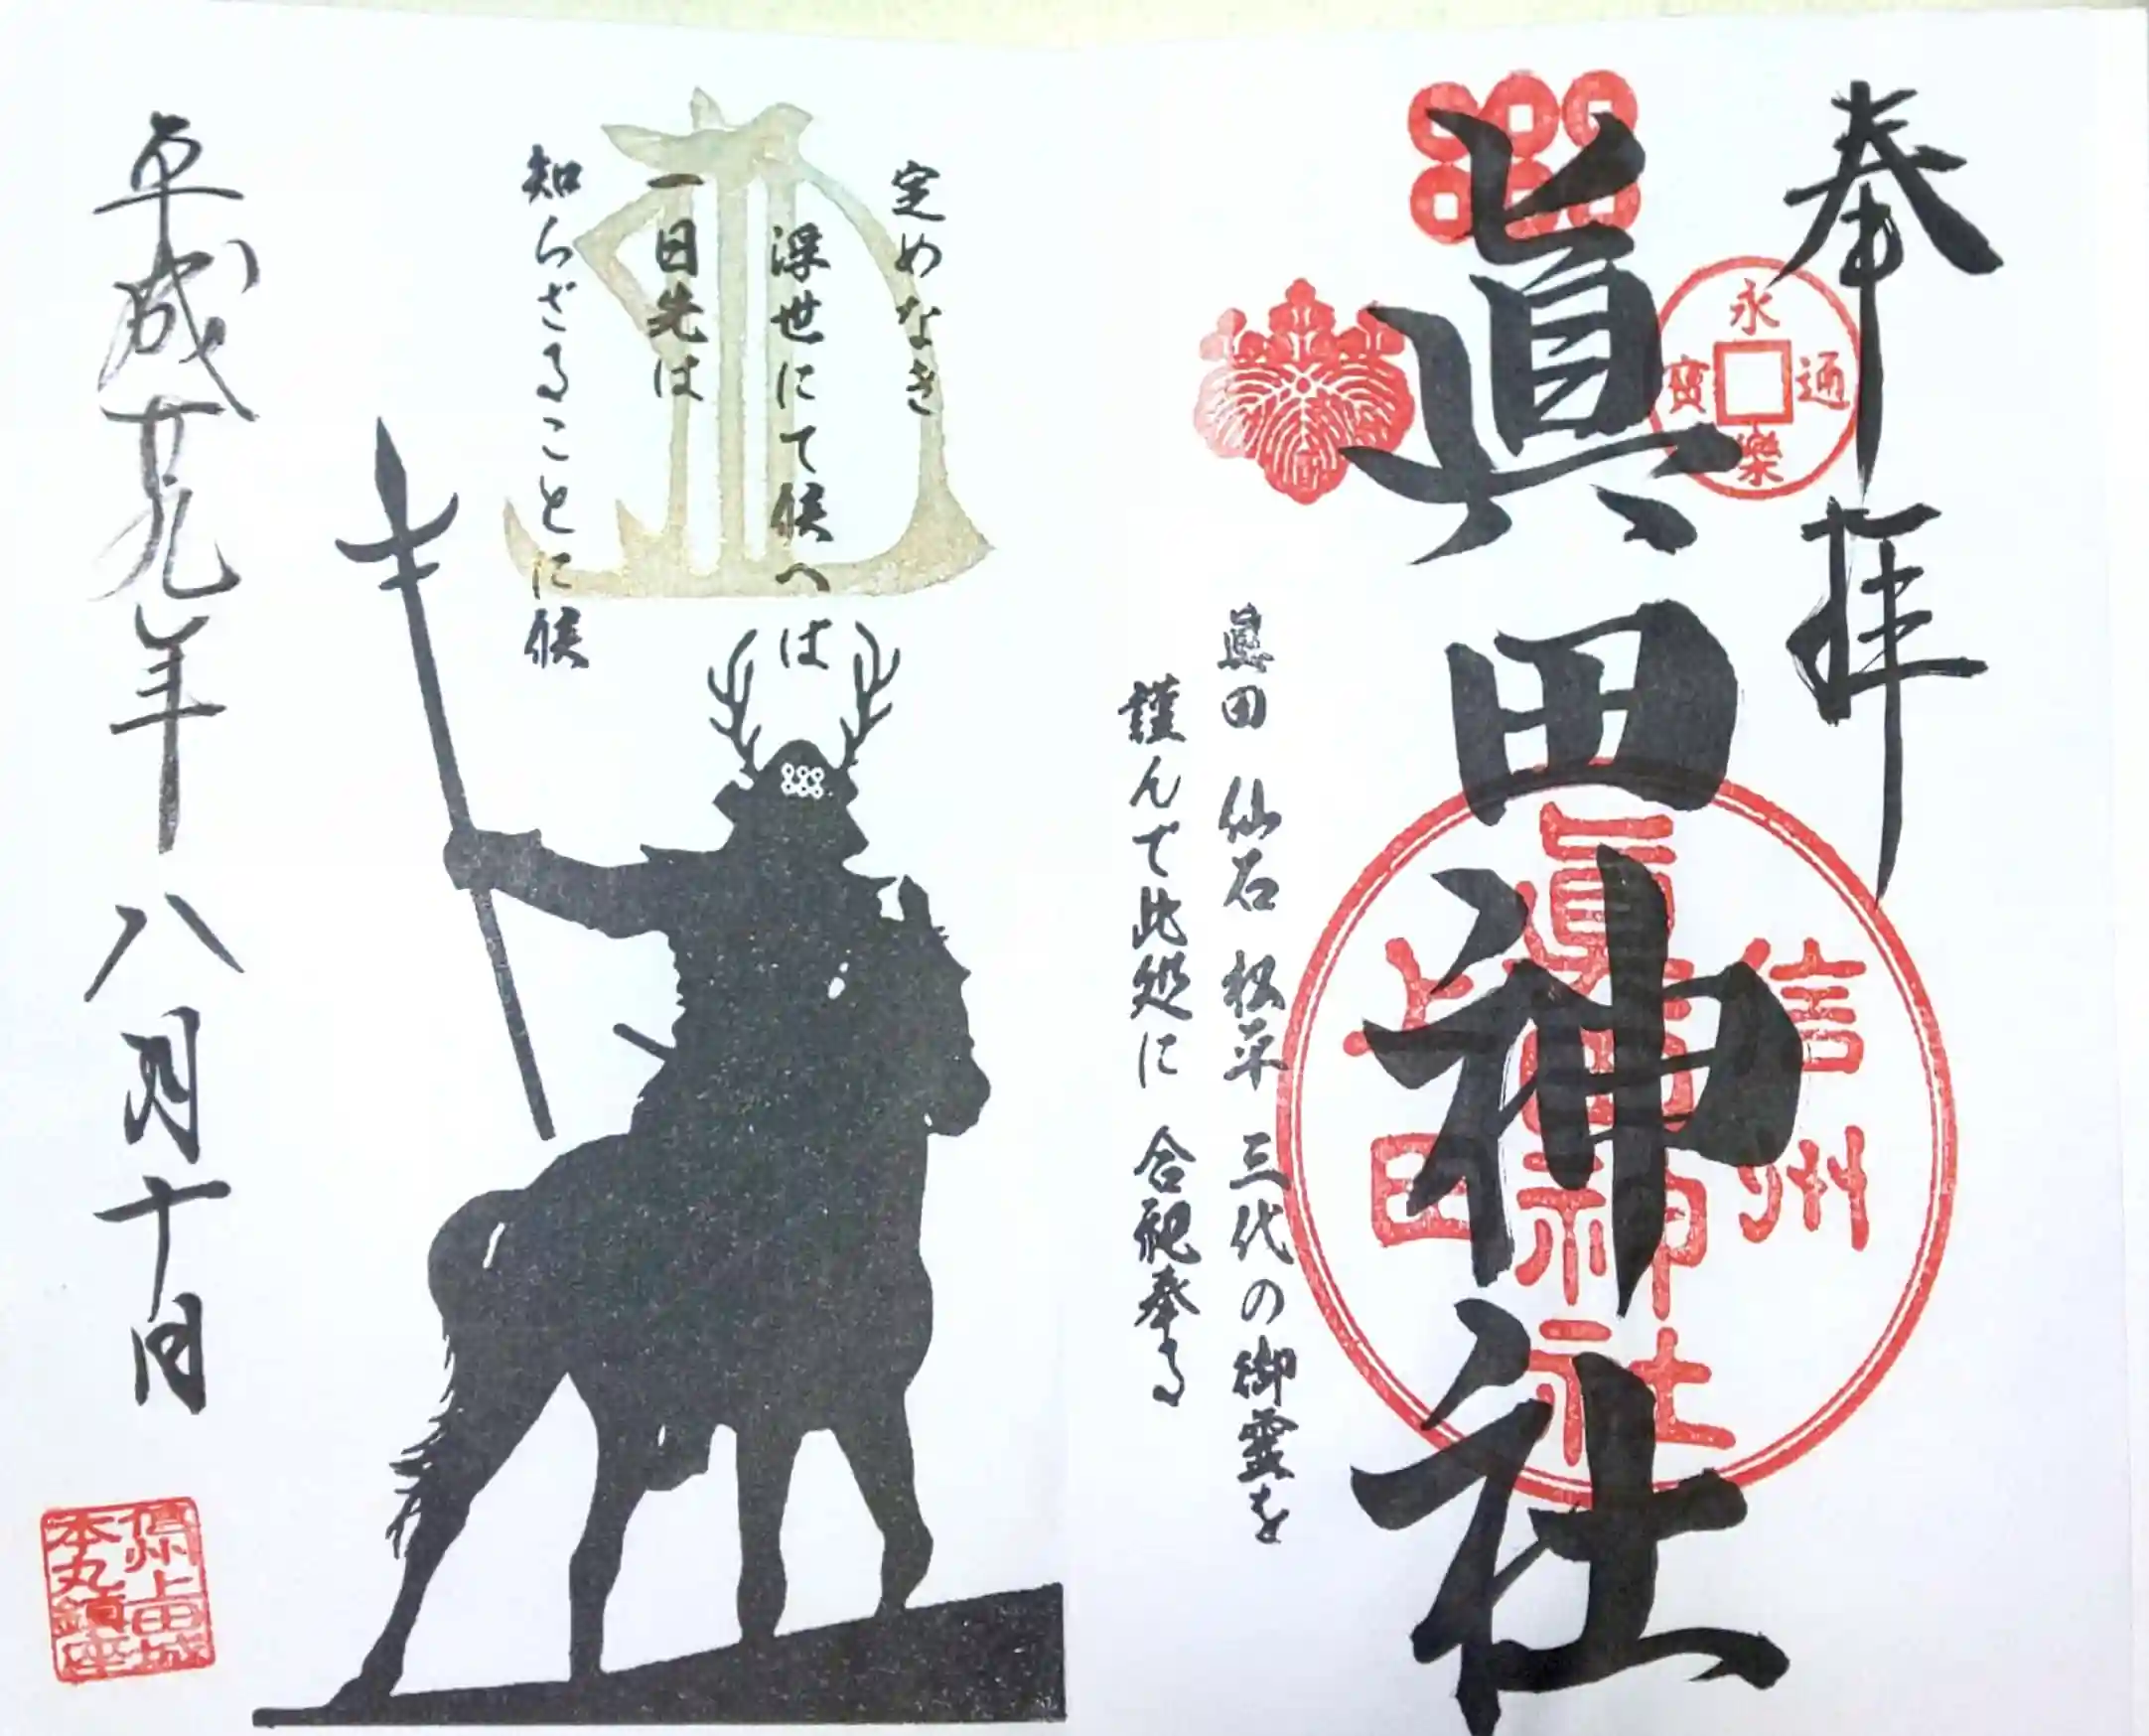 奉拝
眞田神社
永樂通寳
信州
眞田神社
上田
眞田 仙石 松平 三代の御霊を
謹んで此処に 合祀奉る
定めなき
浮世にて候へは
一日先は
知らざることに候
平成廿九年八月十日
信州上田城
本丸鎮座